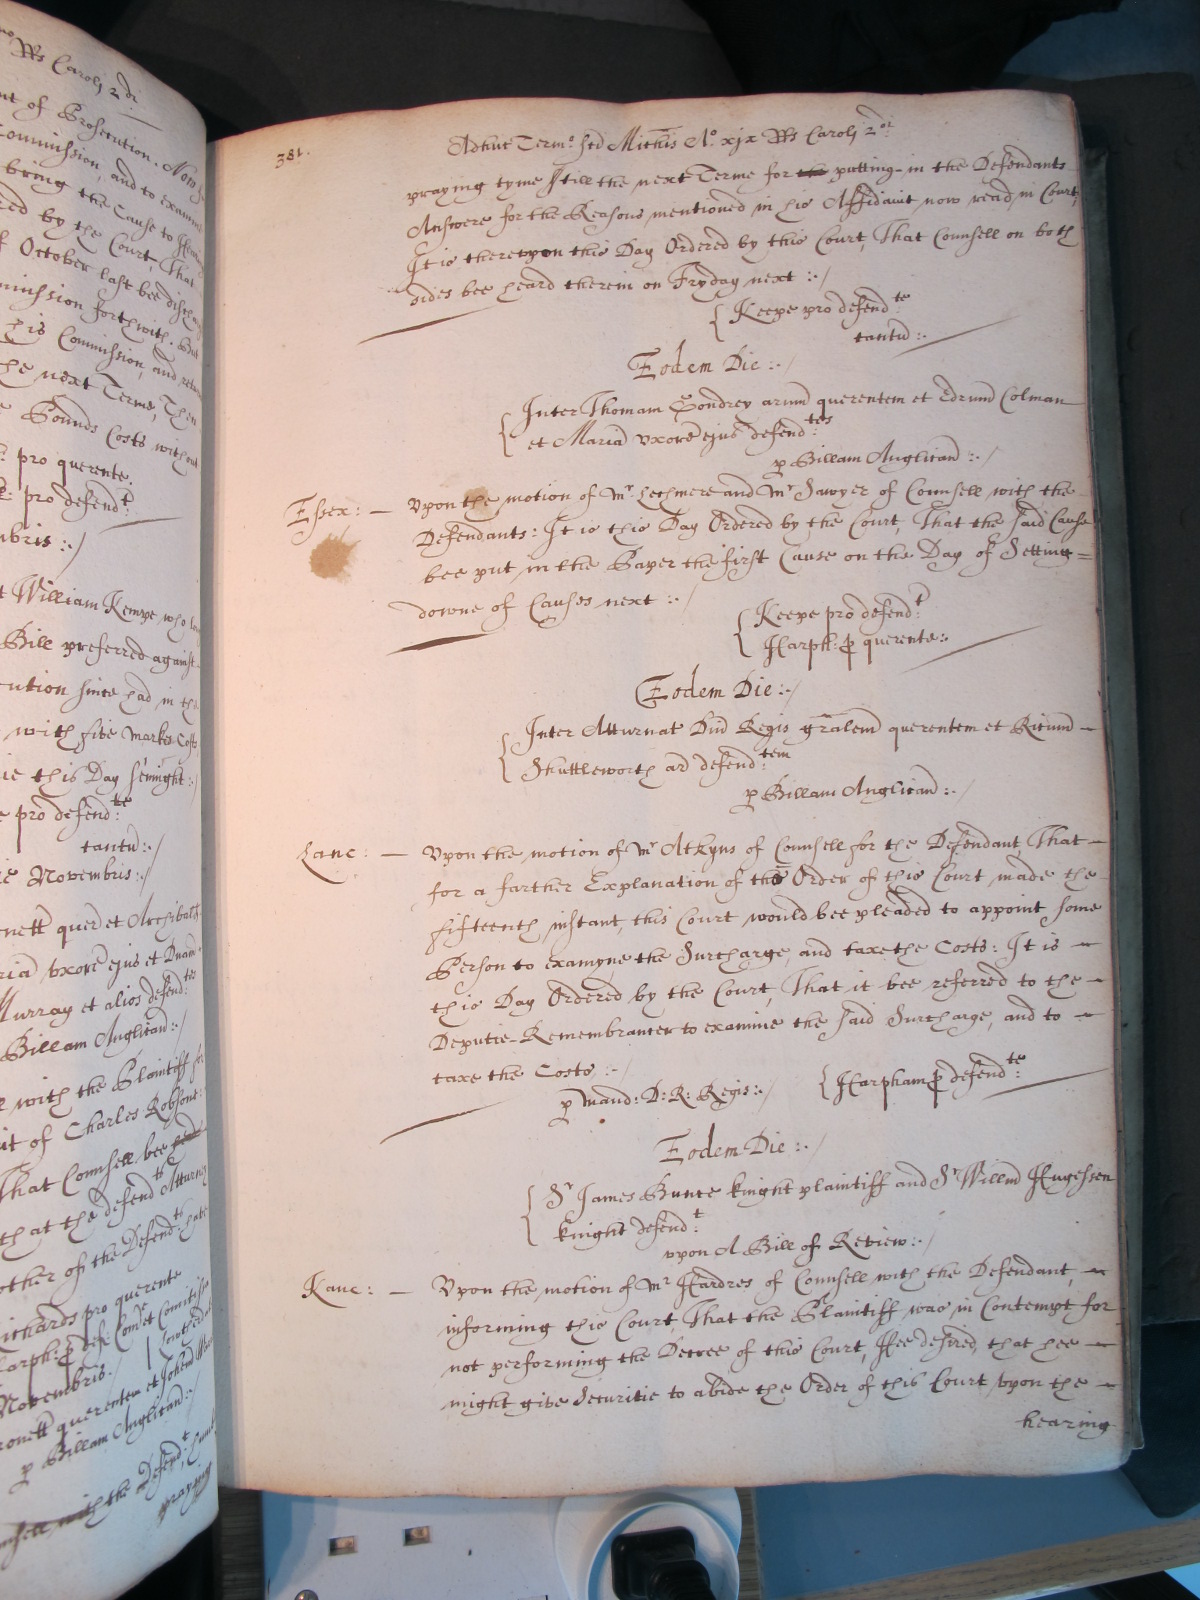 mo Rs Caroli 2di
nt of Prosecution. Now
Commission, and to examin
bring the Cause to
red by the Court, That
f October last bee
mission forthwith. But
his Commission, and
he next Terme, Then
Pounds Costs without
: pro querente.
: pro defend:t
mbris :-/
t William Kempe who
Bill preferred against
cution since had in th
with five markes Costs
ie this Day senight :/
e pro defend:te
tantu :-/
ie Novembris :/
nett quer et Archibald
ria uxore ejus et
Murray et alios defend:tes
Billam Anglican :/
l with the Plaintiff
it of Charles Robsone:
That Counsell bee
that the defend:ts Atturny
other of the Defend:ts
Richards pro querente
Harph: p def:
Novembris.
ronett querentem et
p Billam Anglican :/
unsell with the Defend:t
praying
381.
Adhuc Termo Scti Michis Ao xix Rs Caroli 2di
praying tyme till the next Terme for the putting in the Defendants
Answere for the Reasons mentioned in his Affidavit now read in Court,
It is thereupon this Day Ordered by this Court, That Counsell on both
sides bee heard therein on Fryday next :-/
Keepe pro defend:te
tantu :-
Eodem Die :-/
Inter Thomam Gondrey arum querentem et Edrum Colman
et Maria uxore ejus defend:tes
p Billam Anglican :-/
Essex: — Upon the motion of Mr Lechmere and Mr Sawyer of Counsell with the
Defendants: It is this Day Ordered by the Court, That the said Cause
bee put in the Paper the first Cause on the Day of Setting =
downe of Causes next :-/
Keepe pro defend:t
Harph: p querente:-
Eodem Die :-/
Inter Atturnat Dni Regis gralem querentem et Ricum —
Shuttleworth ar defend:tem
p Billam Anglican :-/
Lanc: — Upon the motion of Mr Atkyns of Counsell for the Defendant, That —
for a farther Explanation of the Order of this Court made the
fifteenth instant, this Court would bee pleaded to appoint some
Person to examyne the Surcharge, and taxe the Costs: It is —
this Day Ordered by the Court, That it bee referred to the —
Deputie-Remembrancer to examine the said Surcharge, and to —
taxe the Costs :-/
p mand: D: R: Regis :-/ Harpham p defend:te
Eodem Die :-/
Sr James Bunce knight plaintiff and Sr Willm Hugessen
knight defend:t
upon A Bill of Review :-/
Kanc: — Upon the motion of Mr Hardres of Counsell with the Defendant, —
informing this Court, That the Plaintiff was in Contempt for
not performing the Decree of this Court, Hee desired, that hee —
might give Securitie to abide the Order of this Court upon the —
hearing